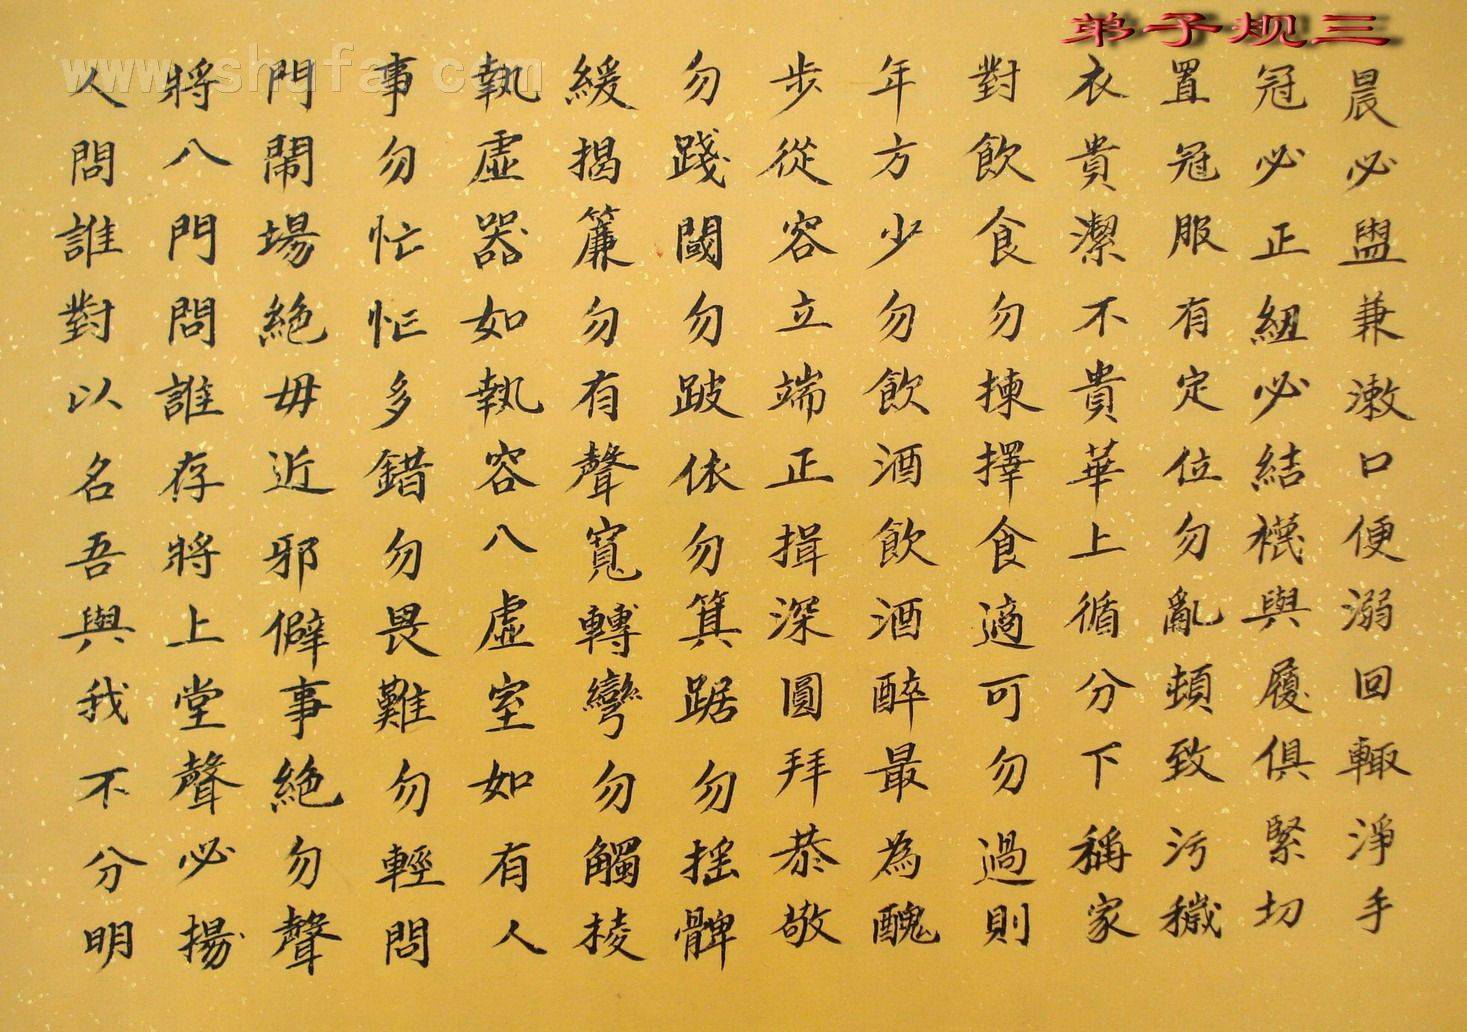 弟子规三
www.shufa.com
晨必盥兼漱口便溺回輙淨手
冠必正紐必結襪與履俱緊切
置冠服有定位勿亂頓致污穢
衣貴潔不貴華上循分下稱家
對飲食勿揀擇食適可勿過則
年方少勿飲酒飲酒醉最為醜
步從容立端正揖深圓拜恭敬
勿踐閾勿跛依勿箕踞勿摇髀
緩揭簾勿有聲寬轉彎勿觸棱
執虛器如執容八虛室如有人
事勿忙忙多錯勿畏難勿輕問
門鬧場絕毋近邪僻事絕勿聲
將八門問誰存將上堂聲必揚
人問誰對以名吾與我不分明